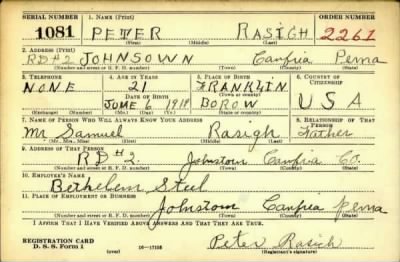 SERIAL NUMBER 1. NAME (Print) ORDER NUMBER
1081 PETER RASIGH 2261
(First) (Middle) (Last)
2. ADDRESS (Print)
RD#2 JOHNSOWN Canfria Penna
(Number and street or R. F. D. number) (Town) (County) (State)
3. TELEPHONE 4. AGE IN YEARS 5. PLACE OF BIRTH 6. COUNTRY OF CITIZENSHIP
NONE 21 FRANKLIN
DATE OF BIRTH (Town or county)
JUNE 6, 1919 BOROW USA
7. NAME OF PERSON WHO WILL ALWAYS KNOW YOUR ADDRESS 8. RELATIONSHIP OF THAT PERSON
Mr Samuel Rasigh Father
(Mr., Mrs., Miss) (First) (Middle) (Last)
9. ADDRESS OF THAT PERSON
RD#2. Johnstown Canfria Co.
(Number and street or R. F. D. number) (Town) (County) (State)
10. EMPLOYER'S NAME
Bethelem Steel
11. PLACE OF EMPLOYMENT OR BUSINESS
Johnstown Canfria Penna
(Number and street or R. F. D. number) (Town) (County) (State)
I AFFIRM THAT I HAVE VERIFIED ABOVE ANSWERS AND THAT THEY ARE TRUE.
REGISTRATION CARD
D. S. S. Form 1 Peter Rasigh
(over) (Registrant's signature)